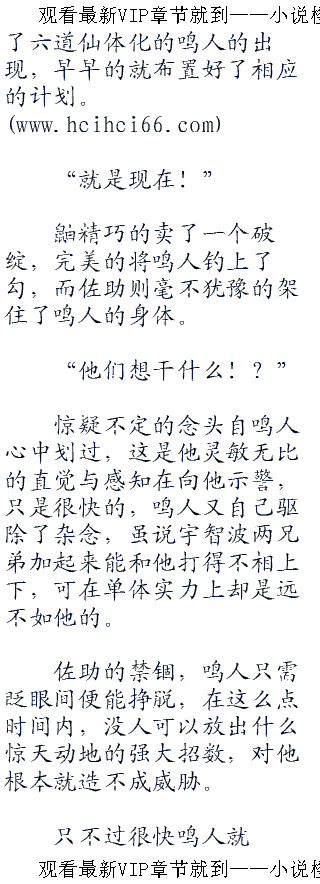 观看最新VIP章节就到——小说检
了六道仙体化的鸣人的出
现，早早的就布置好了相应
的计划。
(www.hcihci66.com)
“就是现在！”
鼬精巧的卖了一个破
绽，完美的将鸣人钓上了
勾，而佐助则毫不犹豫的架
住了鸣人的身体。
“他们想干什么！？”
惊疑不定的念头自鸣人
心中划过，这是他灵敏无比
的直觉与感知在向他示警，
只是很快的，鸣人又自己驱
除了杂念，虽说宇智波两兄
弟加起来能和他打得不相上
下，可在单体实力上却是远
不如他的。
佐助的禁锢，鸣人只需
眨眼间便能挣脱，在这么点
时间内，没人可以放出什么
惊天动地的强大招数，对他
根本就造不成威胁。
只不过很快鸣人就
观看最新VIP章节就到——小说检